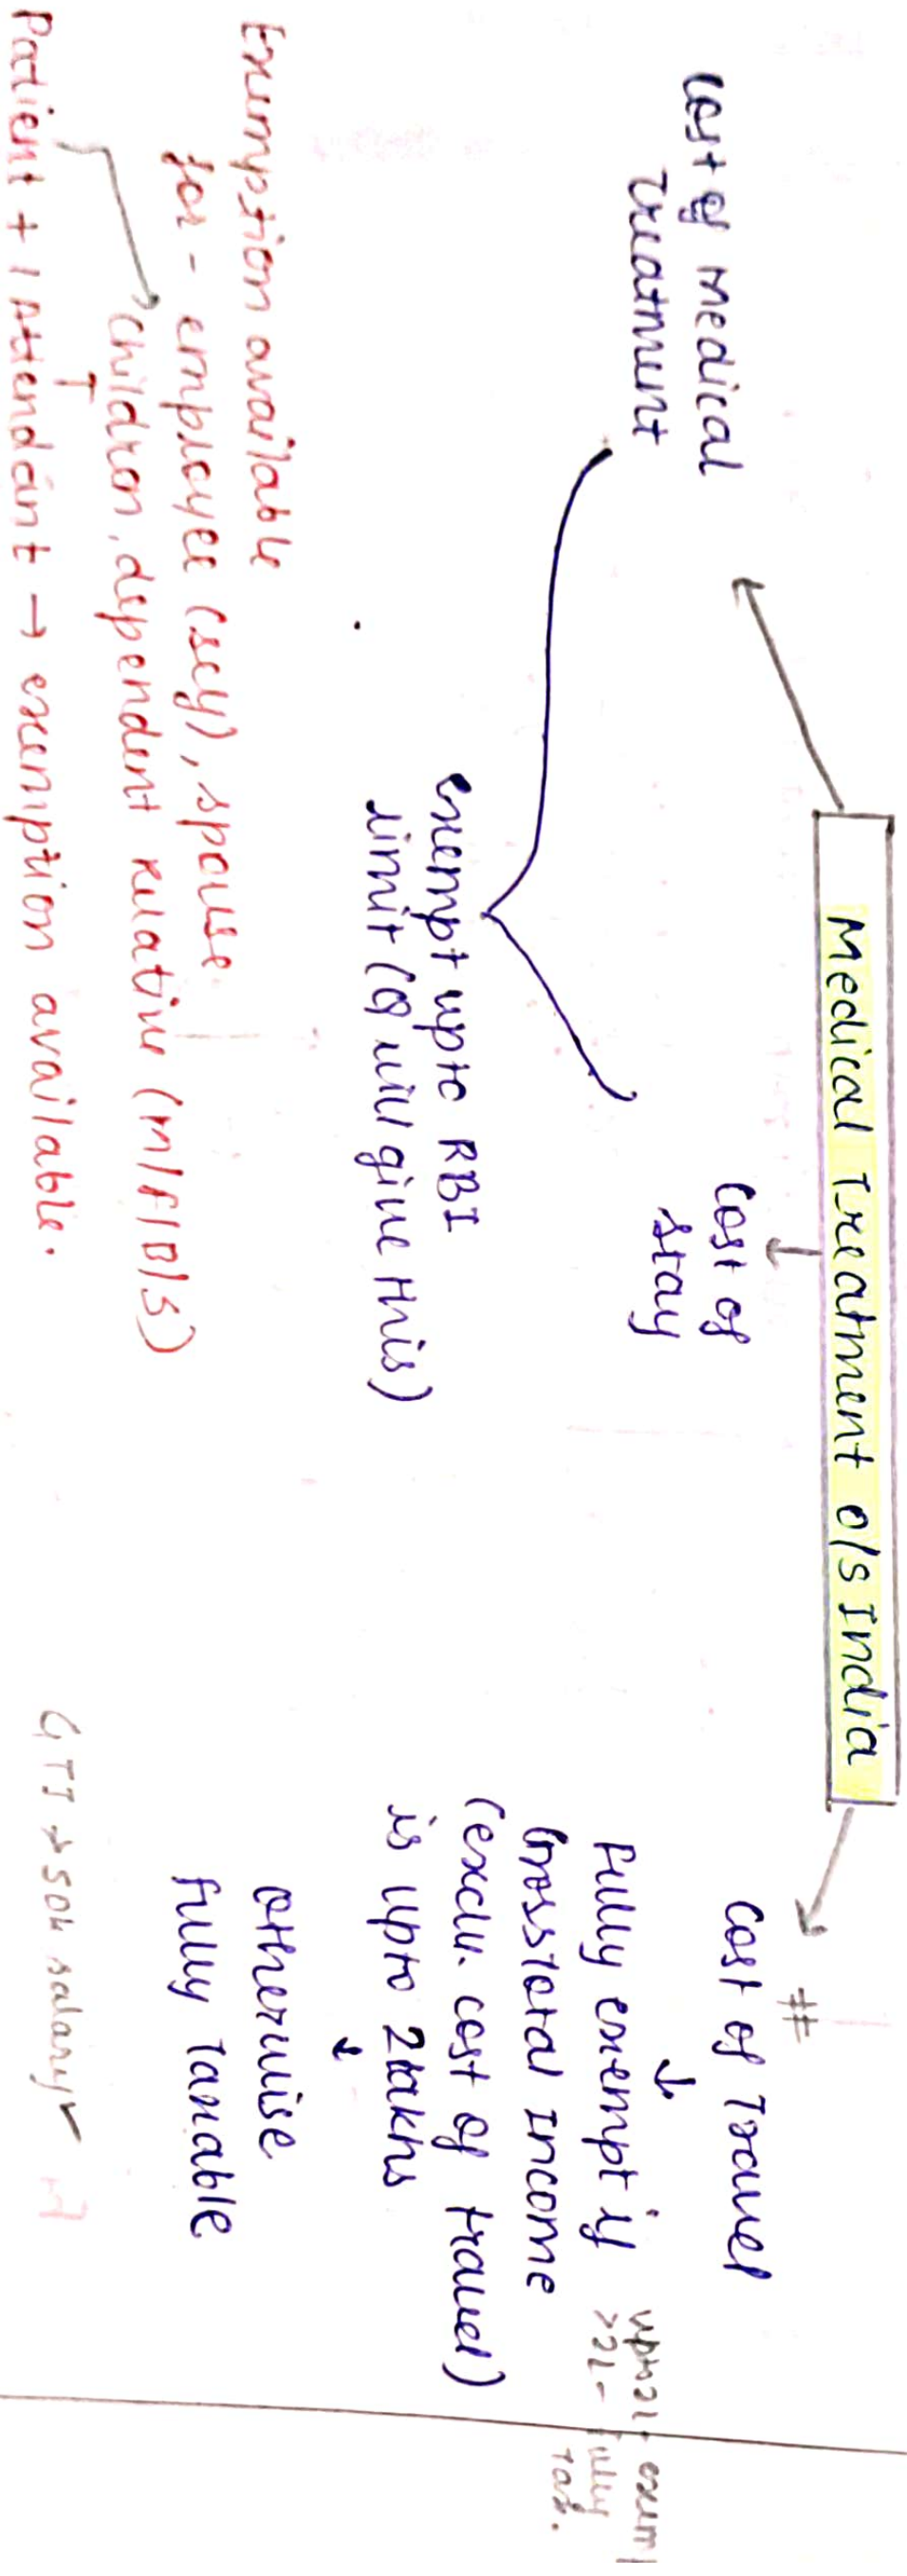 Medical Treatment o/s India
Cost of Medical
Treatment
Cost of
stay
exempt upto RBI
limit (Q will give this)
#
Cost of Travel
Fully exempt if
Gross Total Income
(exclu. cost of travel)
is upto 2 lakhs
otherwise
fully taxable
upto 2L - exem
>2L - fully
tax.
Exemption available
for - employee (self), spouse
children, dependent relative (M/F/B/S)
Patient + 1 Attendant → exemption available.
GTI → salary ✓